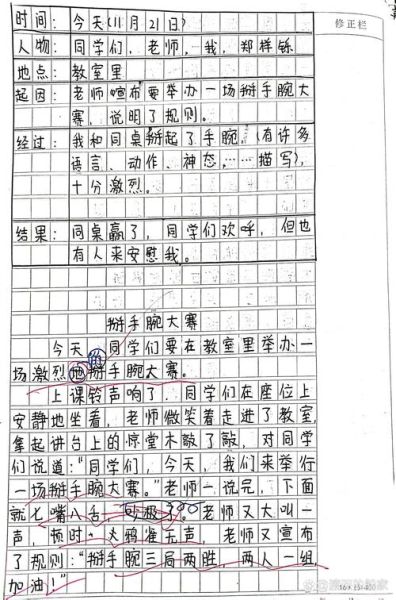 修正栏
时间：今天(11月21日)
人物：同学们，老师，我，郑梓
地点：教室里
起因：老师喧布要举办一场掰手腕大
赛，说明了规则。
经过：我和同桌掰起了手腕，(有许多
语言、动作、神态，……描写)，
十分激烈。
结果：同桌赢了，同学们欢呼，但也
有人来安慰我。
掰手腕大赛
今天，同学们要在教室里举办一
场激烈地掰手腕大赛。
的
上课铃声响了，同学们在座位上
安静地坐着，老师微笑着走进了教室，
拿起讲台上的惊堂木敲了敲，对同学
们说道："同学们，今天，我们来举行
一场掰手腕大赛。"老师一说完，下面
就七嘴八舌，吵极了。老师又大叫一
声，顿时，火鸦雀无声，老师又宣布
了规则："掰手腕三局两胜，两人一组，
加油！"